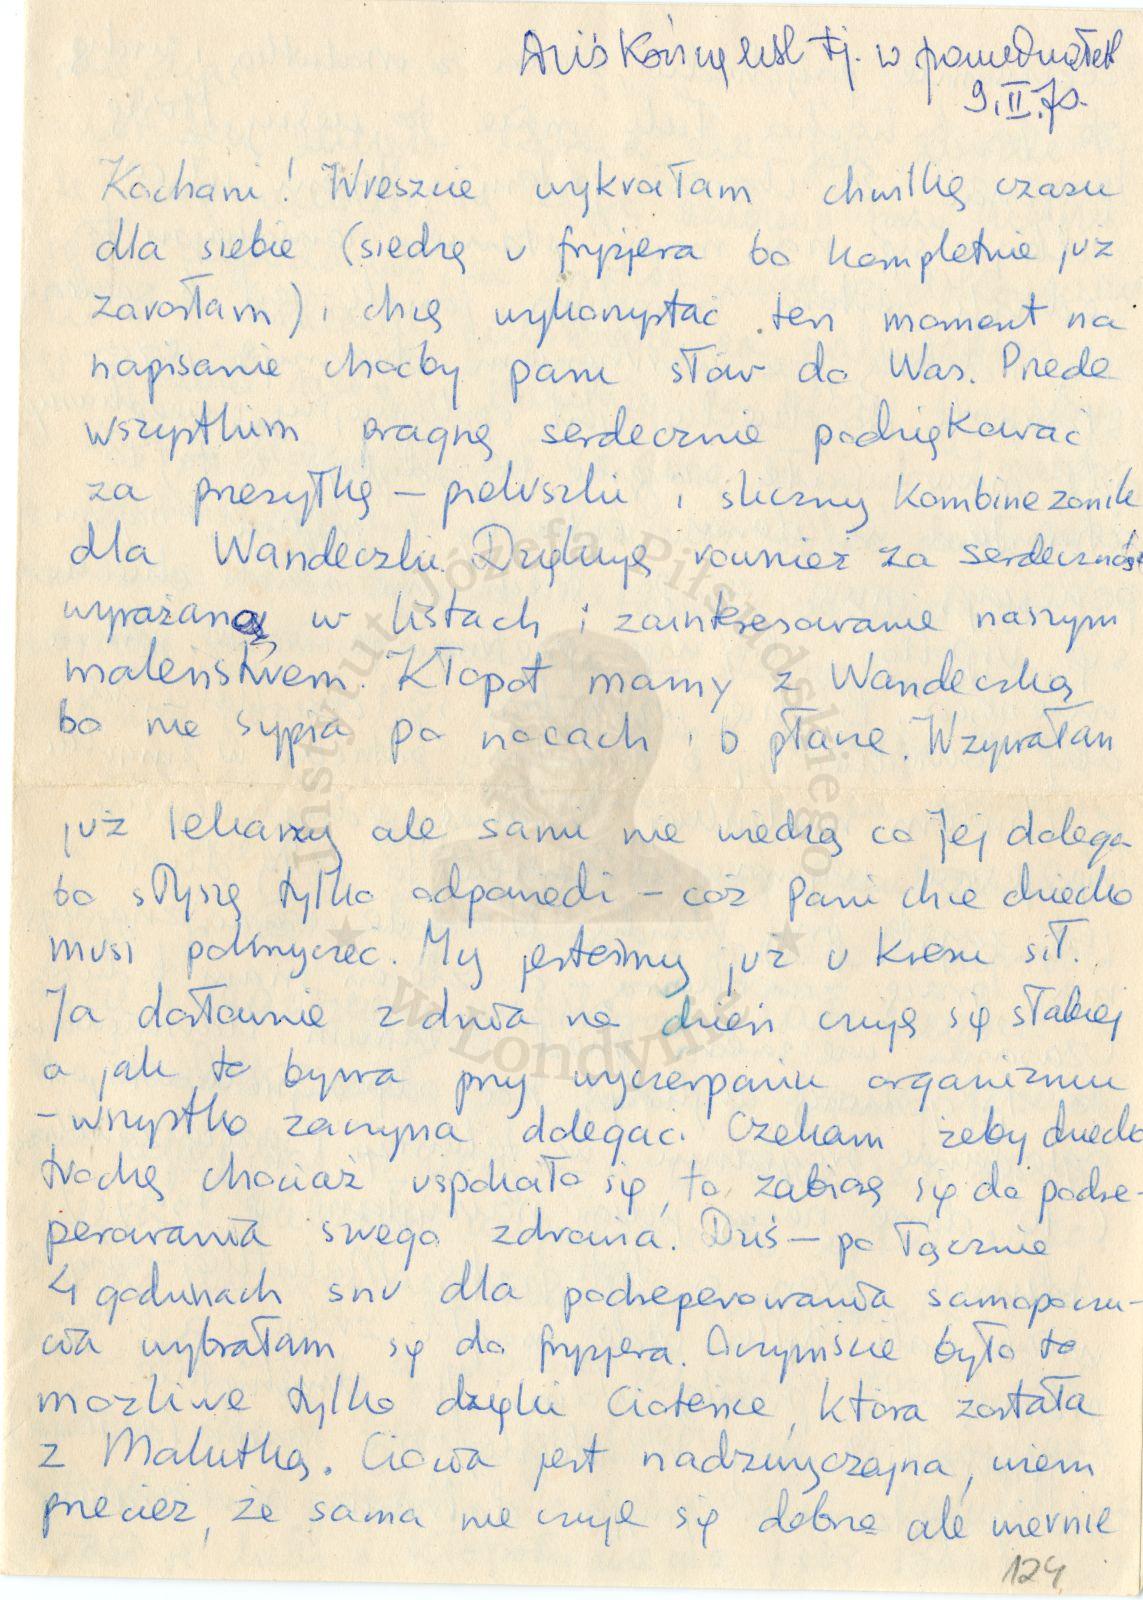 Dziś kończę list tj. w poniedziałek
9.II.70.
Kochani! Wreszcie wykrałam chwilkę czasu
dla siebie (siedzę u fryzjera bo kompletnie już
zarosłam) i chcę wykorzystać ten moment na
napisanie choćby paru słów do Was. Przede
wszystkim pragnę serdecznie podziękować
za przesyłkę – pieluszki i śliczny kombinezonik
dla Wandeczki. Dziękuję również za serdeczność
wyrażaną w listach i zainteresowanie naszym
maleństwem. Kłopot mamy z Wandeczką
bo nie sypia po nocach i b płacze. Wzywałam
już lekarzy ale sami nie wiedzą co Jej dolega
bo słyszę tylko odpowiedź – cóż Pani chce dziecko
musi pokrzyczeć. My jesteśmy już u kresu sił.
Ja dosłownie z dnia na dzień czuję się słabiej
a jak to bywa przy wyczerpaniu organizmu
– wszystko zaczyna dolegać. Czekam żeby dziecko
trochę chociaż uspokoiło się, to zabiorę się do podre-
perowania swego zdrowia. Dziś – po łącznie
4 godzinach snu dla podreperowania samopoczu-
cia wybrałam się do fryzjera. Oczywiście było to
możliwe tylko dzięki Cioteńce, która została
z Malutką. Ciocia jest nadzwyczajna, wiem
przecież, że sama nie czuje się dobrze ale wiernie
124
Instytut Józefa Piłsudskiego
w Londynie